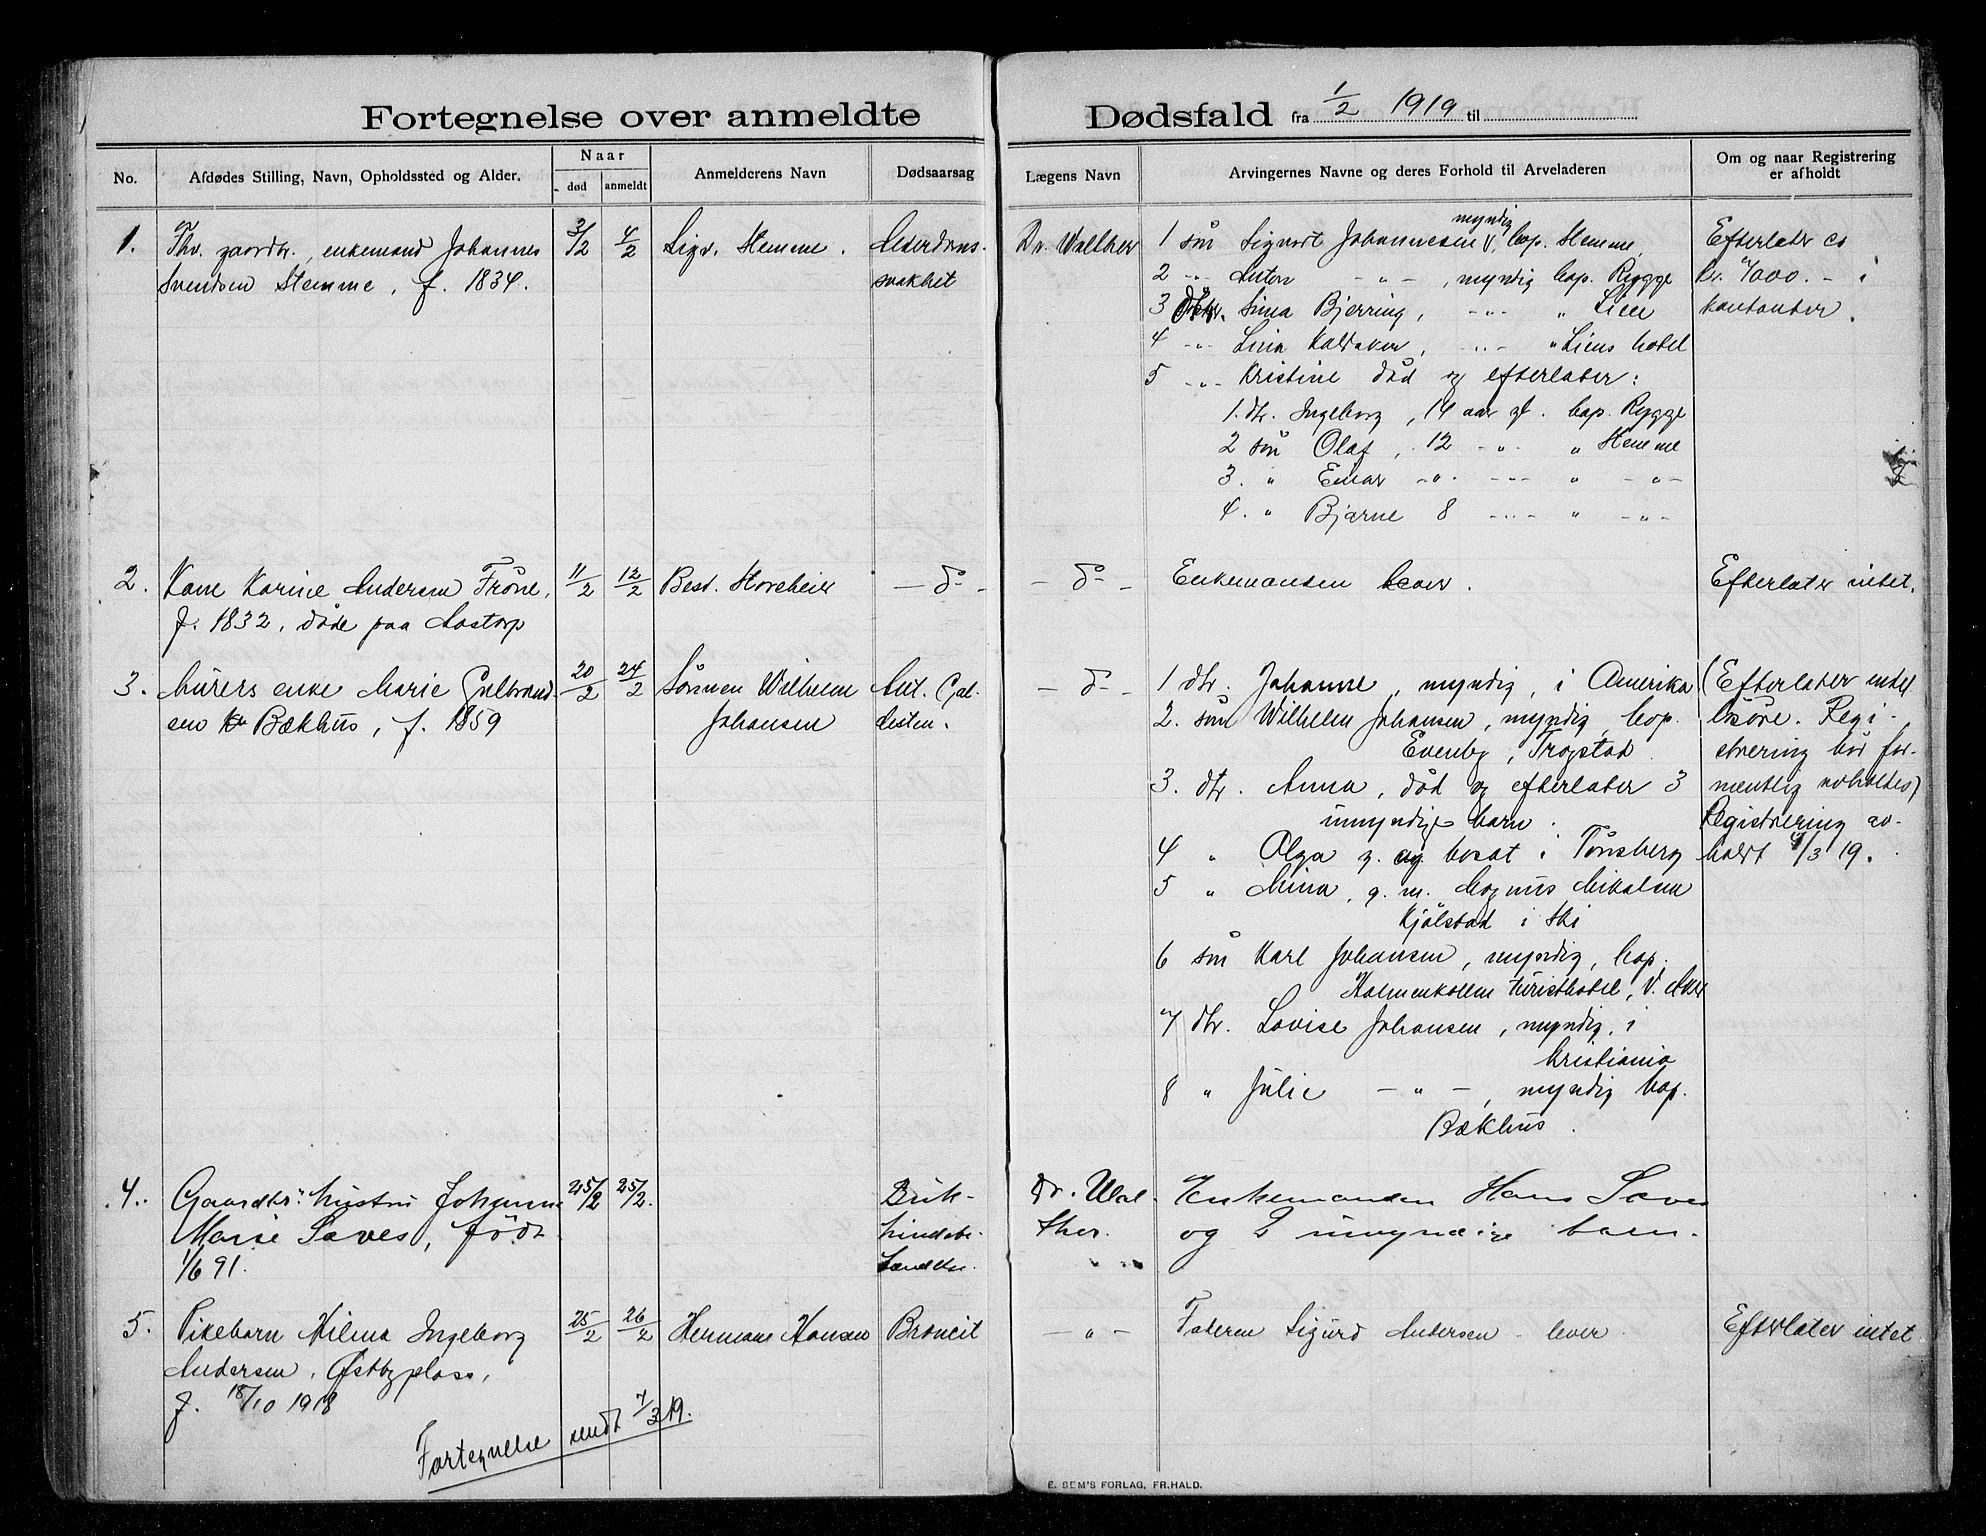 Fortegnelse over anmeldte Dødsfald fra 1/2 1919 til
No.
Afdødes Stilling, Navn, Opholdssted og Alder.
Naar
død
anmeldt
Anmelderens Navn
Dødsaarsag
Lægens Navn
Arvingernes Navne og deres Forhold til Arveladeren
Om og naar Registrering
er afholdt
1.
Fhv. gaardbr., enkemand Johannes
Svendsen Hemme, f. 1834.
3/2
4/2
Sigv. Hemme.
Alderdoms-
svakhet
Dr. Walther
1 søn Sigvart Johannesen, myndig, bop. Hemme
2 -"- Anton -"-, myndig bop. Rygge
3 dtr. Sina Bjerring, -"- "
4 -"- Lina Kaldaker, -"- " Liens hotel
5 -"- Kristine død og efterlater:
1. dtr. Ingeborg, 14 aar gl. bop. Rygge
2 søn Olaf, 12 -"- " Hemme
3. " Einar -"- -"- " -"-
4. " Bjarne 8 -"- " -"-
Efterlater ca
kr. 7000.- i
kontanter.
2.
Kone Karine Andersen Trøne,
f. 1832, døde paa Aastorp
11/2
12/2
Best. Storeheier
- d° -
- d° -
Enkemanden lever.
Efterlater intet.
3.
Murers enke Marie Gulbrand-
sen Bækhus, f. 1859
20/2
24/2
Sønnen Wilhelm
Johansen
- d° -
1 dtr. Johanne, myndig, i Amerika
2. søn Wilhelm Johansen, myndig, bop.
Evenby, Trøgstad
3. dtr. Anna, død og efterlater 3
umyndige barn.
4 " Olga g. og bosat i Tønsberg
5 " Mina, g. m. Magnus Mikalsen
Kjølstad i Ski
6 søn Karl Johansen, myndig, bop.
Holmenkollen turisthotel, V. Aker
7 dtr. Lovise Johansen, myndig, i
Kristiania
8 " Julie -"-, myndig bop.
Bækhus.
(Efterlater endel
løsøre. Regi-
strering bør for-
mentlig avholdes)
Registrering av-
holdt 4/3 19.
4.
Gaardbr. hustru Johanne
Marie Saves, født
1/6 91.
25/2
25/2.
Bryst-
hindebe-
tændelse.
Dr. Wal-
ther.
Enkemanden Hans Saves
og 2 umyndige barn.
5.
Pikebarn Hilma Ingeborg
Andersen, Østbyplass,
f. 18/10 1918
25/2
26/2
Hermann Hansen
Broncit
- " -
Faderen Sigurd Andersen lever.
Efterlater intet
Fortegnelse sendt 7/3 19.
E. SEM'S FORLAG, FR.HALD.